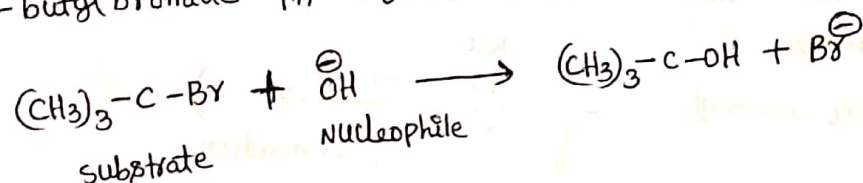 - butyl bromide
(CH3)3-C-Br + OH⊖ ⟶ (CH3)3-C-OH + Br⊖
substrate Nucleophile